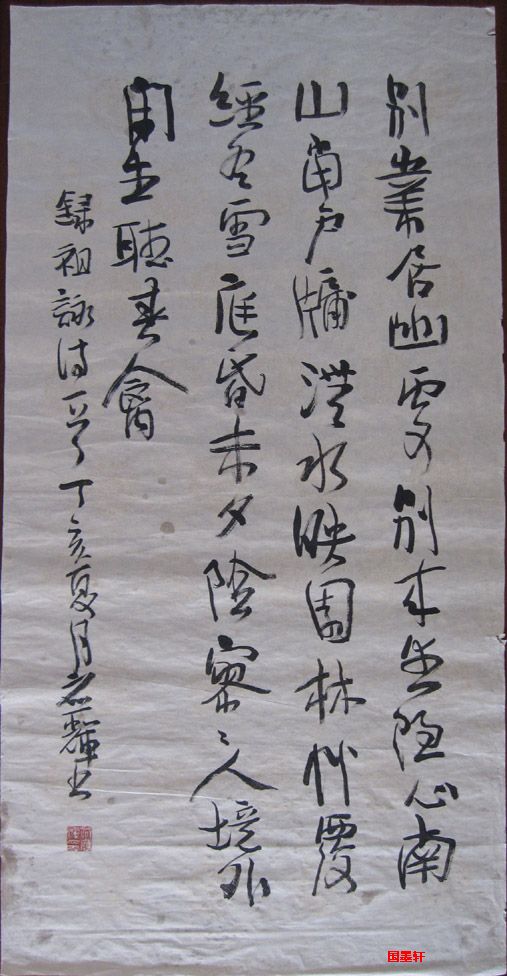 别業居幽處到来生隐心南
山當户牖澧水映園林竹覆
經冬雪庭昏未夕陰寥々人境外
閑坐聽春禽
録祖詠詩一首丁亥夏月書
国墨轩